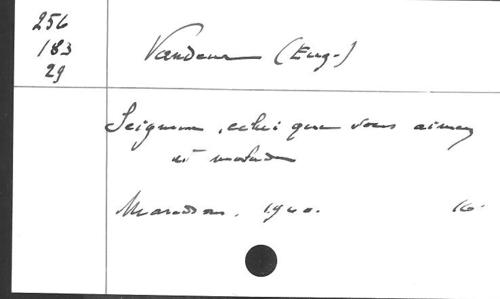 256
183
29
Vandeur (Eug.)
Seigneur, celui que vous aimez
est malade
Maredsous. 1940. 16.